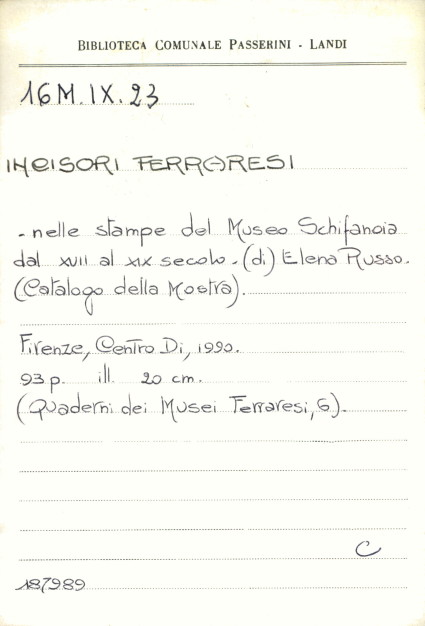 BIBLIOTECA COMUNALE PASSERINI - LANDI
16M.IX.23
INCISORI FERRARESI
- nelle stampe del Museo Schifanoia
dal XVII al XIX secolo. (di) Elena Russo.
(Catalogo della Mostra).
Firenze, Centro Di, 1990.
93 p. ill. 20 cm.
(Quaderni dei Musei Ferraresi, 6).
C
187989